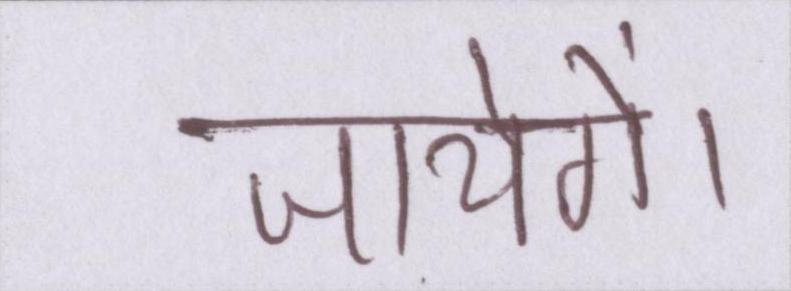 जायेगें।